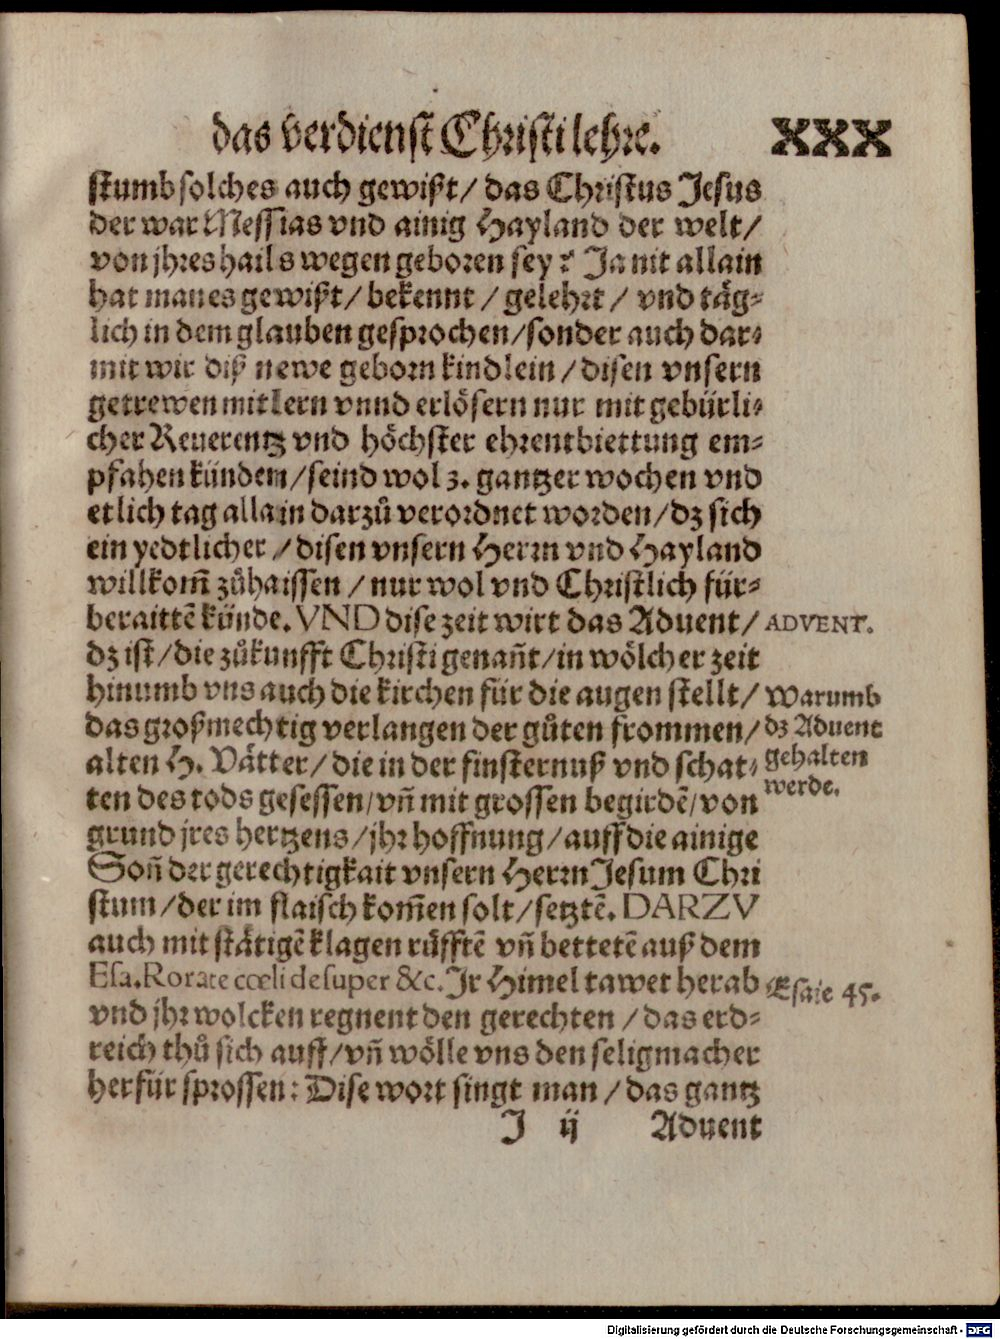 das verdienst Christi lehre. XXX
stumb solches auch gewißt / das Christus Jesus
der war Messias vnd ainig Hayland der welt /
von jhres hails wegen geboren sey? Ja nit allain
hat man es gewißt / bekennt / gelehrt / vnd täg⸗
lich in dem glauben gesprochen / sonder auch dar⸗
mit wir diß newe geborn kindlein / disen vnsern
getrewen mitlern vnnd erlösern nur mit gebürli⸗
cher Reuerentz vnd höchster ehrentbiettung em⸗
pfahen kündem / seind wol 3. gantzer wochen vnd
etlich tag allain darzů verordnet worden / dz sich
ein yedtlicher / disen vnsern Herrn vnd Hayland
willkom̃ zůhaissen / nur wol vnd Christlich für⸗
beraittẽ künde. VND dise zeit wirt das Aduent /
ADVENT.
dz ist / die zůkunfft Christi genañt / in wölcher zeit
hinumb vns auch die kirchen für die augen stellt /
das großmechtig verlangen der gůten frommen /
alten H. Vätter / die in der finsternuß vnd schat⸗
ten des tods gesessen / vñ mit grossen begirdẽ / von
Warumb
dz Aduent
gehalten
werde.
grund jres hertzens / jhr hoffnung / auff die ainige
Soñ der gerechtigkait vnsern Herrn Jesum Chri
stum / der im flaisch kom̃en solt / setztẽ. DARZV
auch mit stätigẽ klagen růfftẽ vñ bettetẽ auß dem
Esa. Rorate cœli desuper &c. Jr Himel tawet herab
Esaie 45.
vnd jhr wolcken regnent den gerechten / das erd⸗
reich thů sich auff / vñ wölle vns den seligmacher
herfür sprossen: Dise wort singt man / das gantz
J ij Aduent
Digitalisierung gefördert durch die Deutsche Forschungsgemeinschaft - DFG